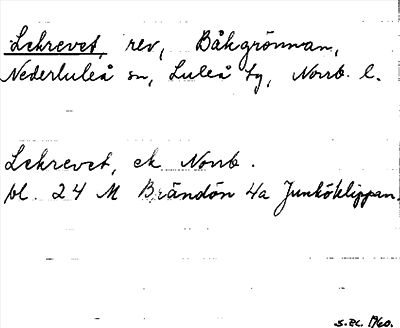 Lekrevet, rev, Båkgrönnan,
Nederluleå sn, Luleå tg, Norrb. l.
Lekrevet, ek Norrb.
bl. 24 M Brändön 4a Junköklippan.
S.Ek. 1960.